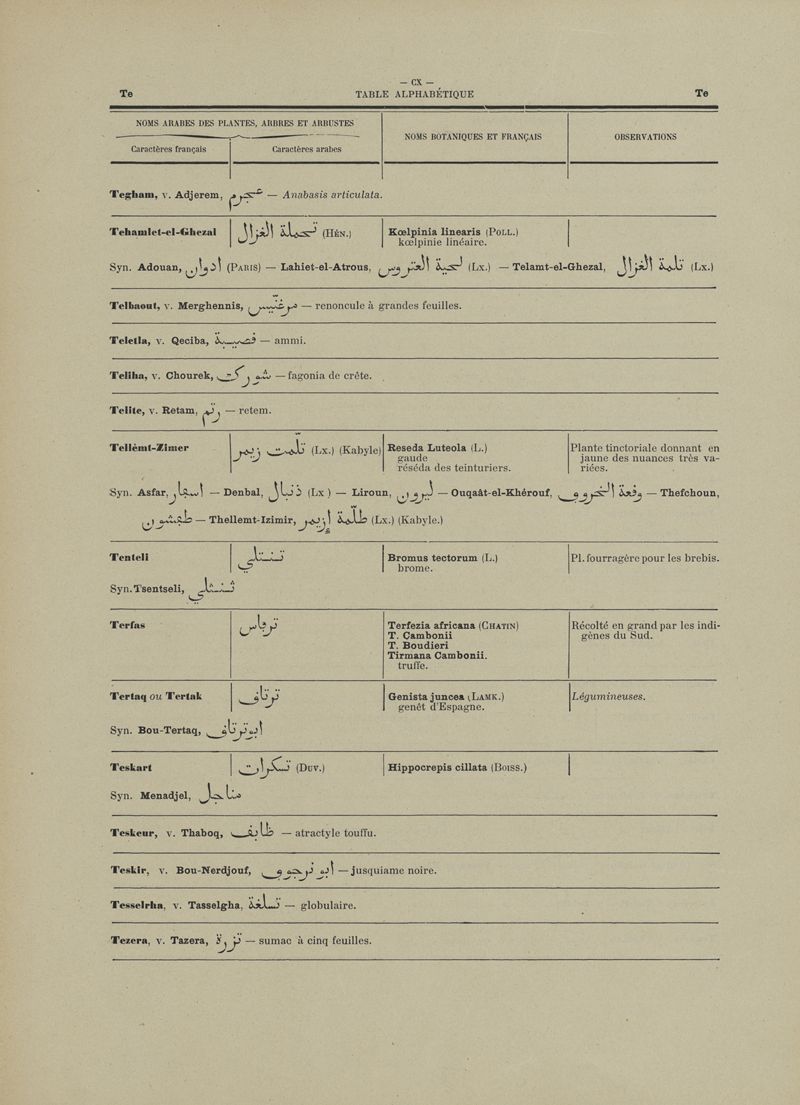 — CX —
Te TABLE ALPHABÉTIQUE Te
NOMS ARABES DES PLANTES, ARBRES ET ARBUSTES
NOMS BOTANIQUES ET FRANÇAIS
OBSERVATIONS
Caractères français Caractères arabes
Tegham, v. Adjerem, عجرم — Anabasis articulata.
Tehamlet-el-Ghezal تحملة الغزال (HÉN.) Kœlpinia linearis (POLL.)
kœlpinie linéaire.
Syn. Adouan, ادوان (PARIS) — Lahiet-el-Atrous, لحية العتروس (Lx.) — Telamt-el-Ghezal, تلمة الغزال (Lx.)
Telbaout, v. Merghennis, مرغنيس — renoncule à grandes feuilles.
Teletla, v. Qeciba, قصيبة — ammi.
Teliha, v. Chourek, شوركت — fagonia de crête.
Telite, v. Retam, رتم — retem.
Tellèmt-Zimer تلمت زيمر (Lx.) (Kabyle) Reseda Luteola (L.) Plante tinctoriale donnant en
gaude jaune des nuances très va-
réséda des teinturiers. riées.
Syn. Asfar, — Denbal, ذنبال (Lx ) — Liroun, ليرون — Ouqaât-el-Khérouf, وقعة الخروف — Thefchoun,
طفشون — Thellemt-Izimir, طلمة ازيمر (Lx.) (Kabyle.)
Tenteli تنتلي Bromus tectorum (L.) Pl. fourragère pour les brebis.
brome.
Syn. Tsentseli, ثنثلي
Terfas ترفاس Terfezia africana (CHATIN) Récolté en grand par les indi-
T. Cambonii gènes du Sud.
T. Boudieri
Tirmana Cambonii.
truffe.
Tertaq ou Tertak ترتاق Genista juncea (LAMK.) Légumineuses.
genêt d'Espagne.
Syn. Bou-Tertaq, ابوترتاق
Teskart تسكرات (DUV.) Hippocrepis cillata (BOISS.)
Syn. Menadjel, مناجل
Teskeur, v. Thaboq, طابق — atractyle touffu.
Teskir, v. Bou-Nerdjouf, ابو نرجوف — jusquiame noire.
Tesselrha, v. Tasselgha, تسلغة — globulaire.
Tezera, v. Tazera, تزرة — sumac à cinq feuilles.